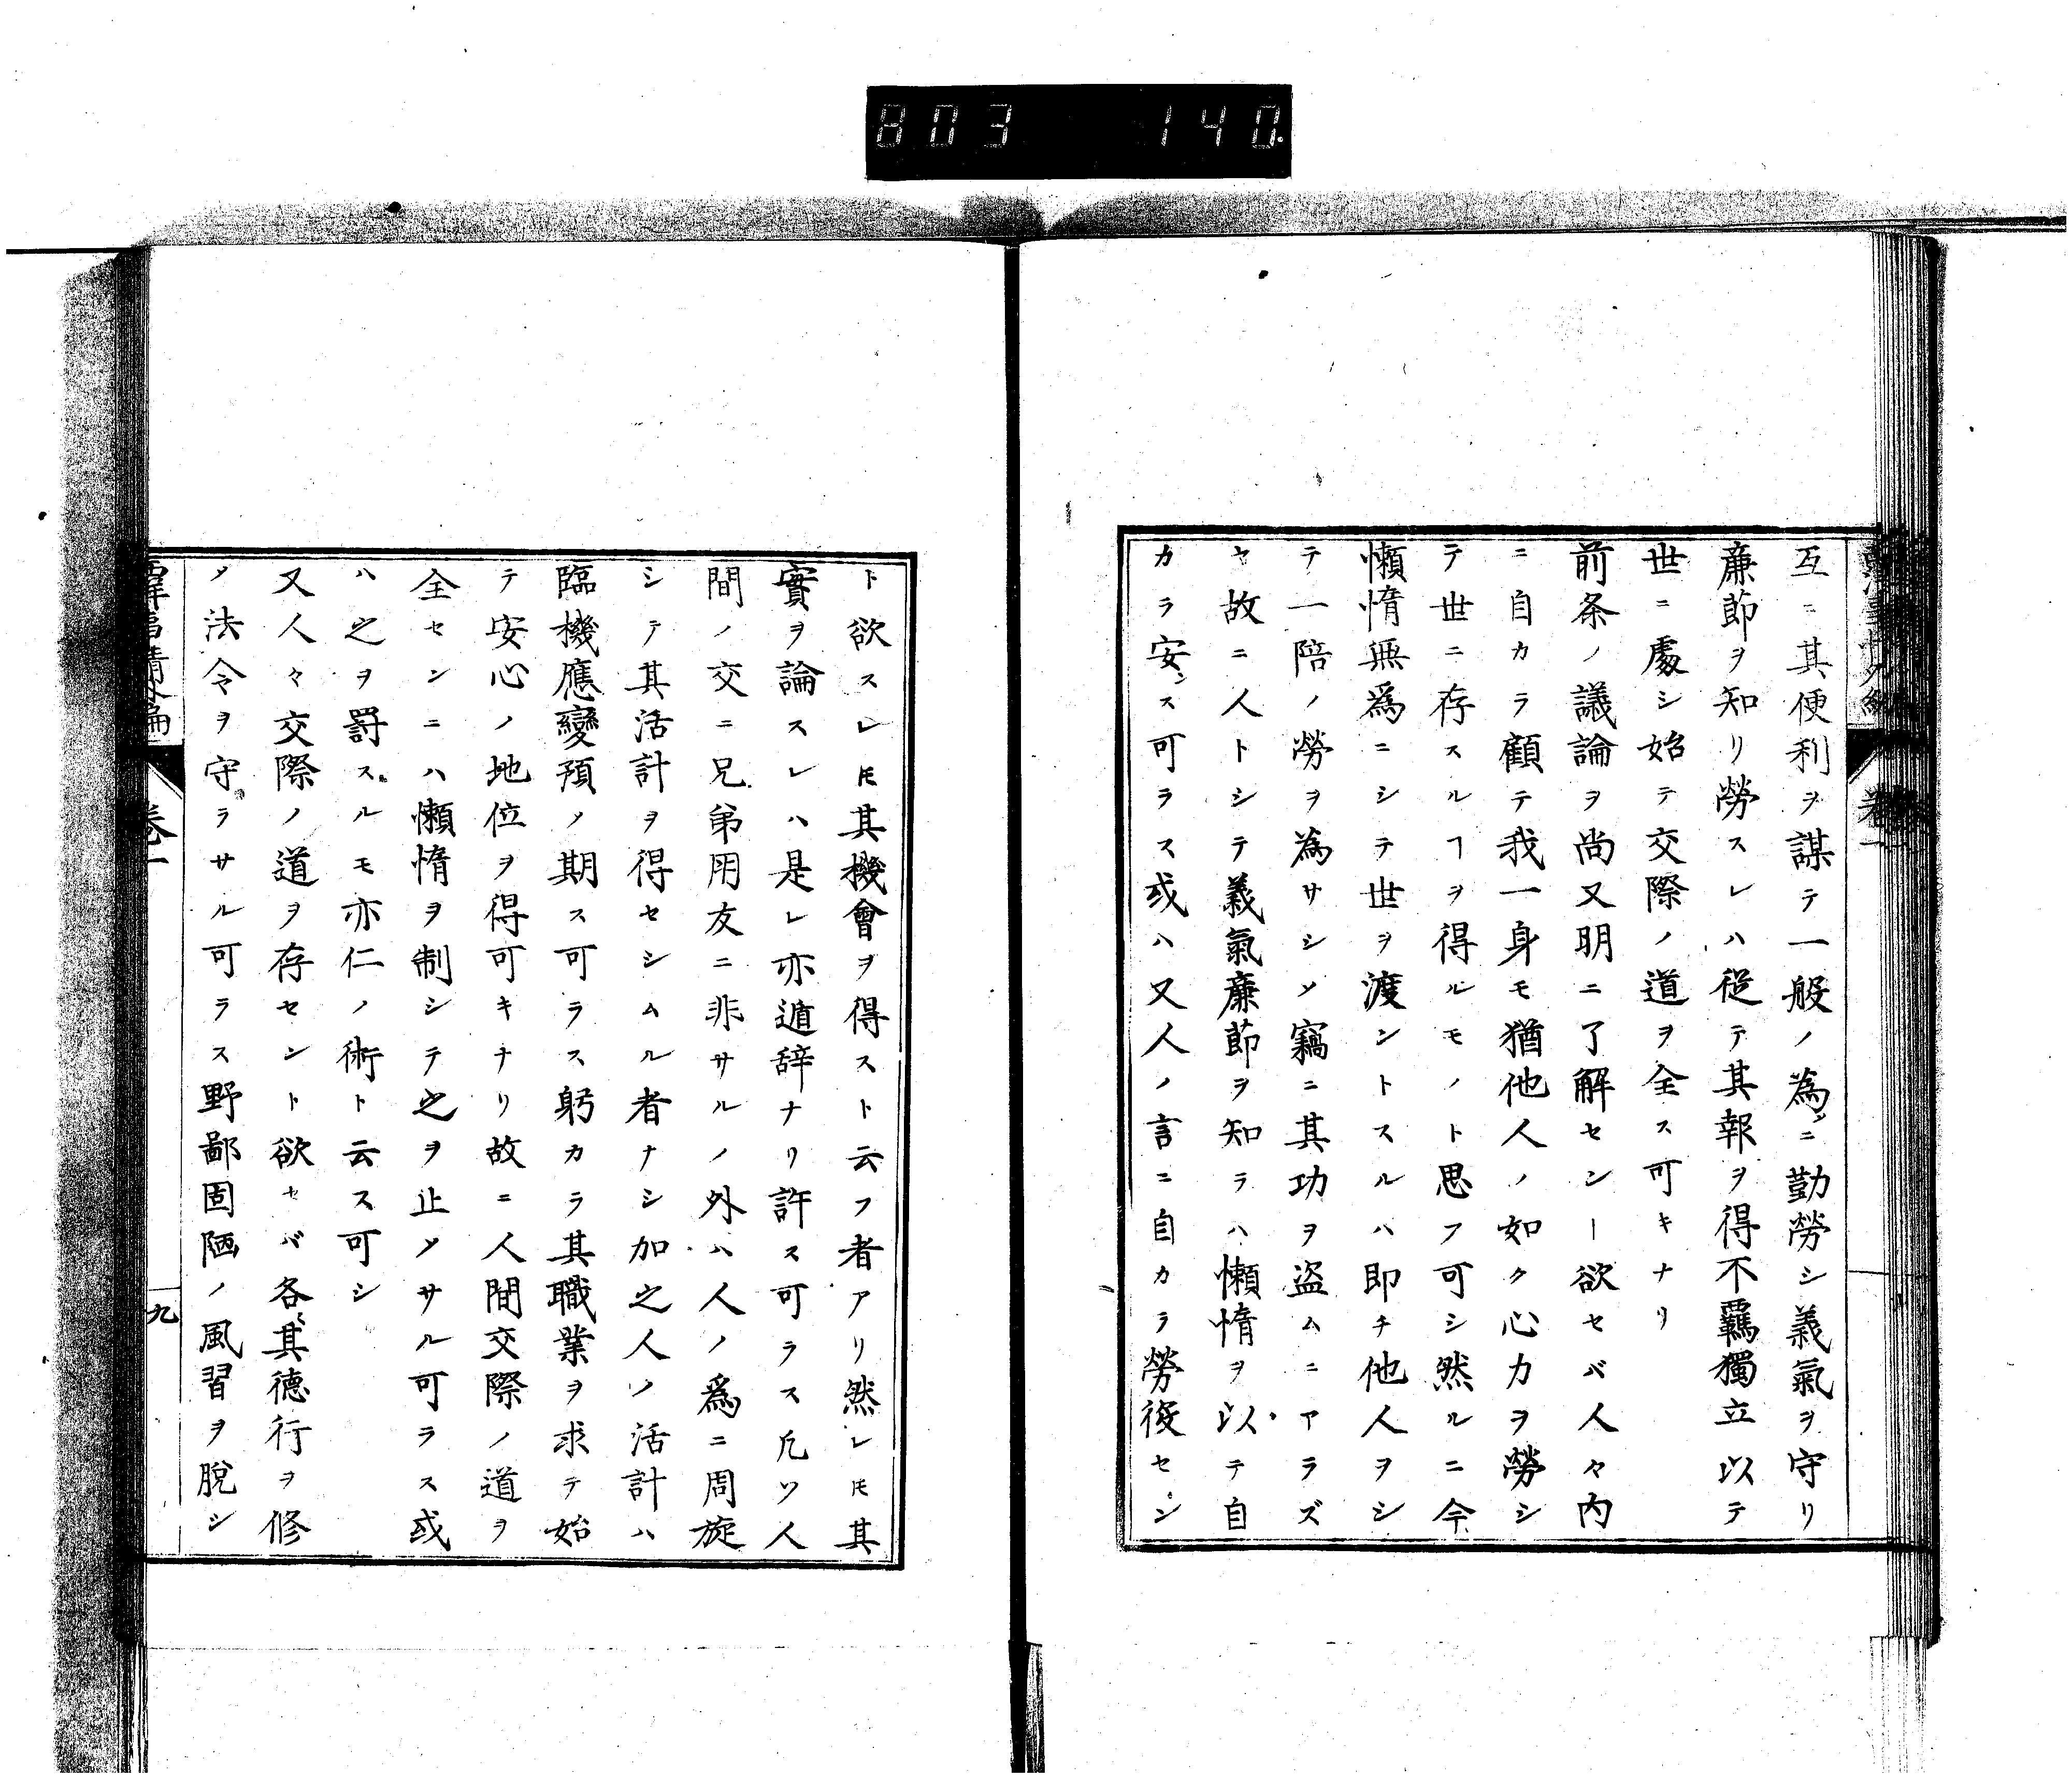 803 140.
互ニ其便利ヲ謀テ一般ノ為ニ勤勞シ義氣ヲ守リ
廉節ヲ知リ勞スレハ從テ其報ヲ得不羈獨立以テ
世ニ處シ始テ交際ノ道ヲ全ス可キナリ
前条ノ議論ヲ尚又明ニ了解センー欲セバ人々内
ニ自カラ顧テ我一身モ猶他人ノ如ク心力ヲ勞シ
テ世ニ存スルヿヲ得ルモノト思フ可シ然ルニ今
懶惰無爲ニシテ世ヲ渡ントスルハ即チ他人ヲシ
テ一陪ノ勞ヲ為サシメ竊ニ其功ヲ盗ムニアラズ
ヤ故ニ人トシテ義氣廉節ヲ知ラハ懶惰ヲ以テ自
カラ安ンス可ラス或ハ又人ノ言ニ自カラ勞役セン
ト欲スレ𪜈其機會ヲ得スト云フ者アリ然レ𪜈其
實ヲ論スレハ是レ亦遁辞ナリ許ス可ラス凡ソ人
間ノ交ニ兄弟朋友ニ非サルノ外ハ人ノ爲ニ周旋
シテ其活計ヲ得セシムル者ナシ加之人ノ活計ハ
臨機應變預メ期ス可ラス躬カラ其職業ヲ求テ始
テ安心ノ地位ヲ得可キナリ故ニ人間交際ノ道ヲ
全センニハ懶惰ヲ制シテ之ヲ止メサル可ラス或
ハ之ヲ罰スルモ亦仁ノ術ト云ス可シ
又人々交際ノ道ヲ存セント欲セバ各其德行ヲ修
メ法令ヲ守ラサル可ラス野鄙固陋ノ風習ヲ脫シ
卷一
九